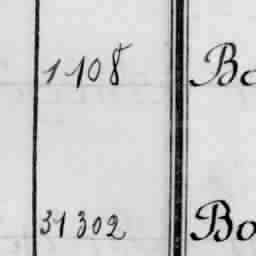 1108 Bo
31302 Bo